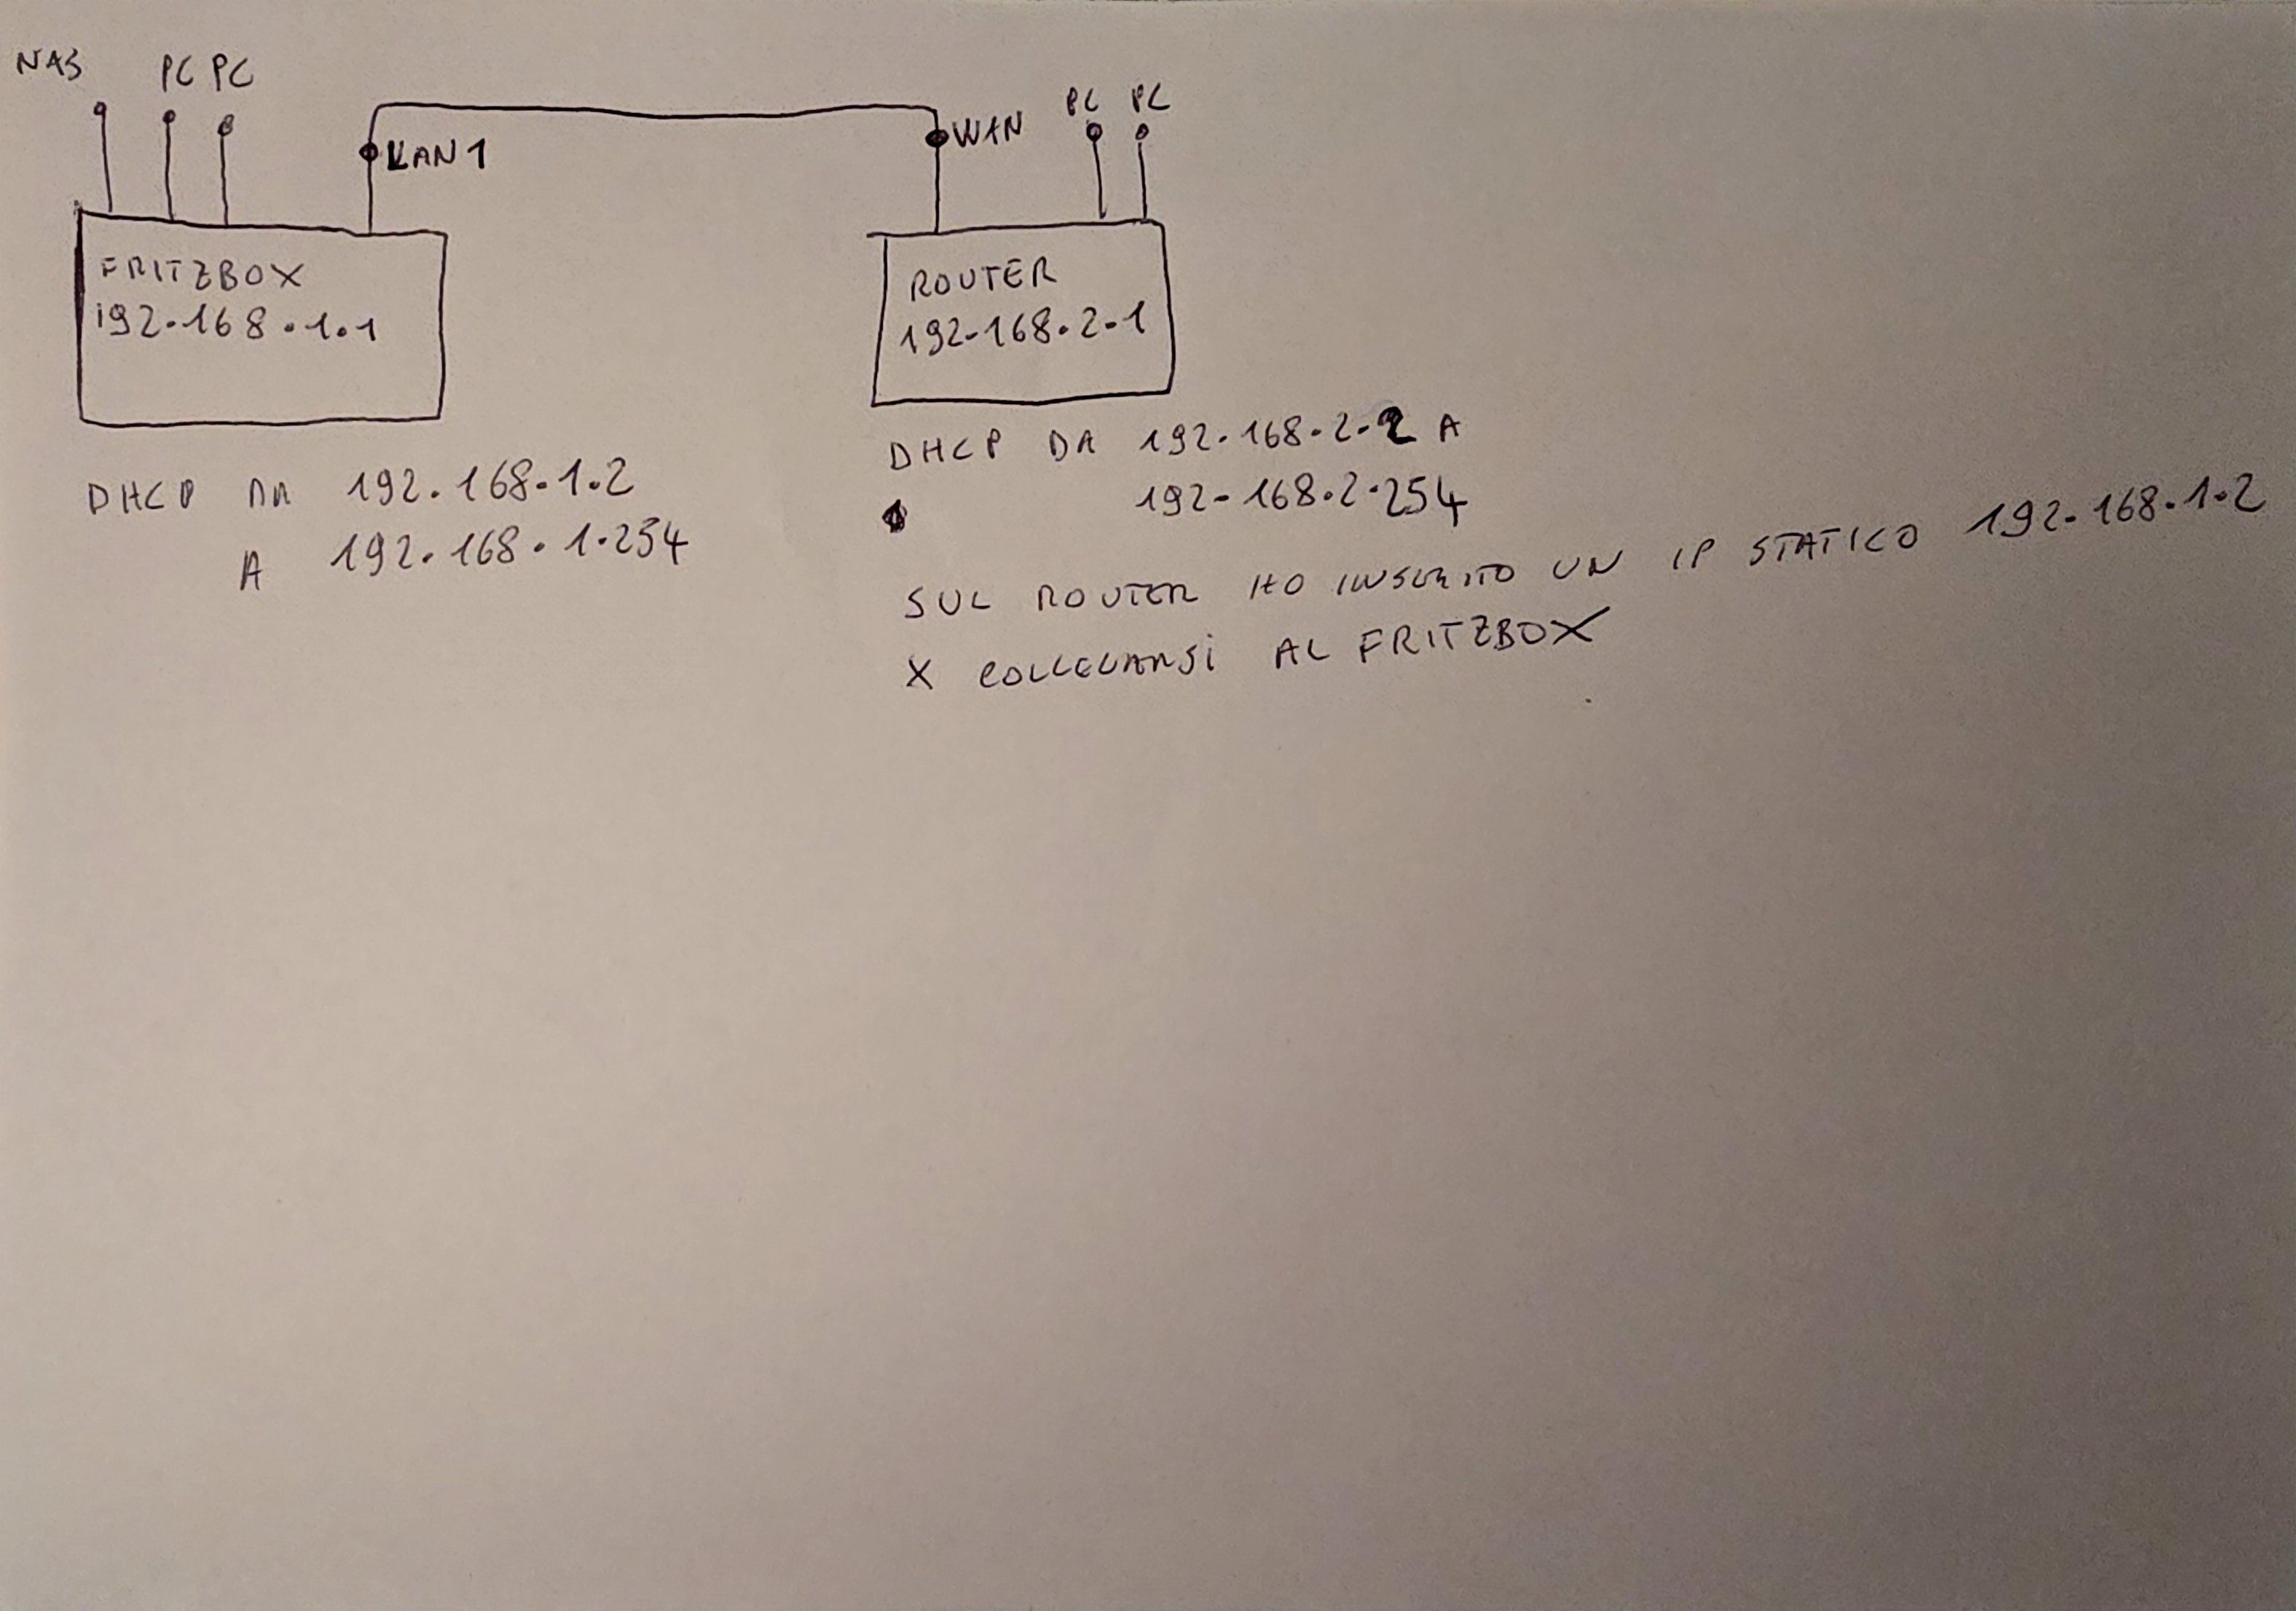 NAS PC PC
LAN 1
WAN
PC PC
FRITZBOX
192.168.1.1
ROUTER
192.168.2.1
DHCP DA 192.168.1.2
A 192.168.1.254
DHCP DA 192.168.2.2 A
192.168.2.254
SUL ROUTER HO INSERITO UN IP STATICO 192.168.1.2
X COLLEGARSI AL FRITZBOX